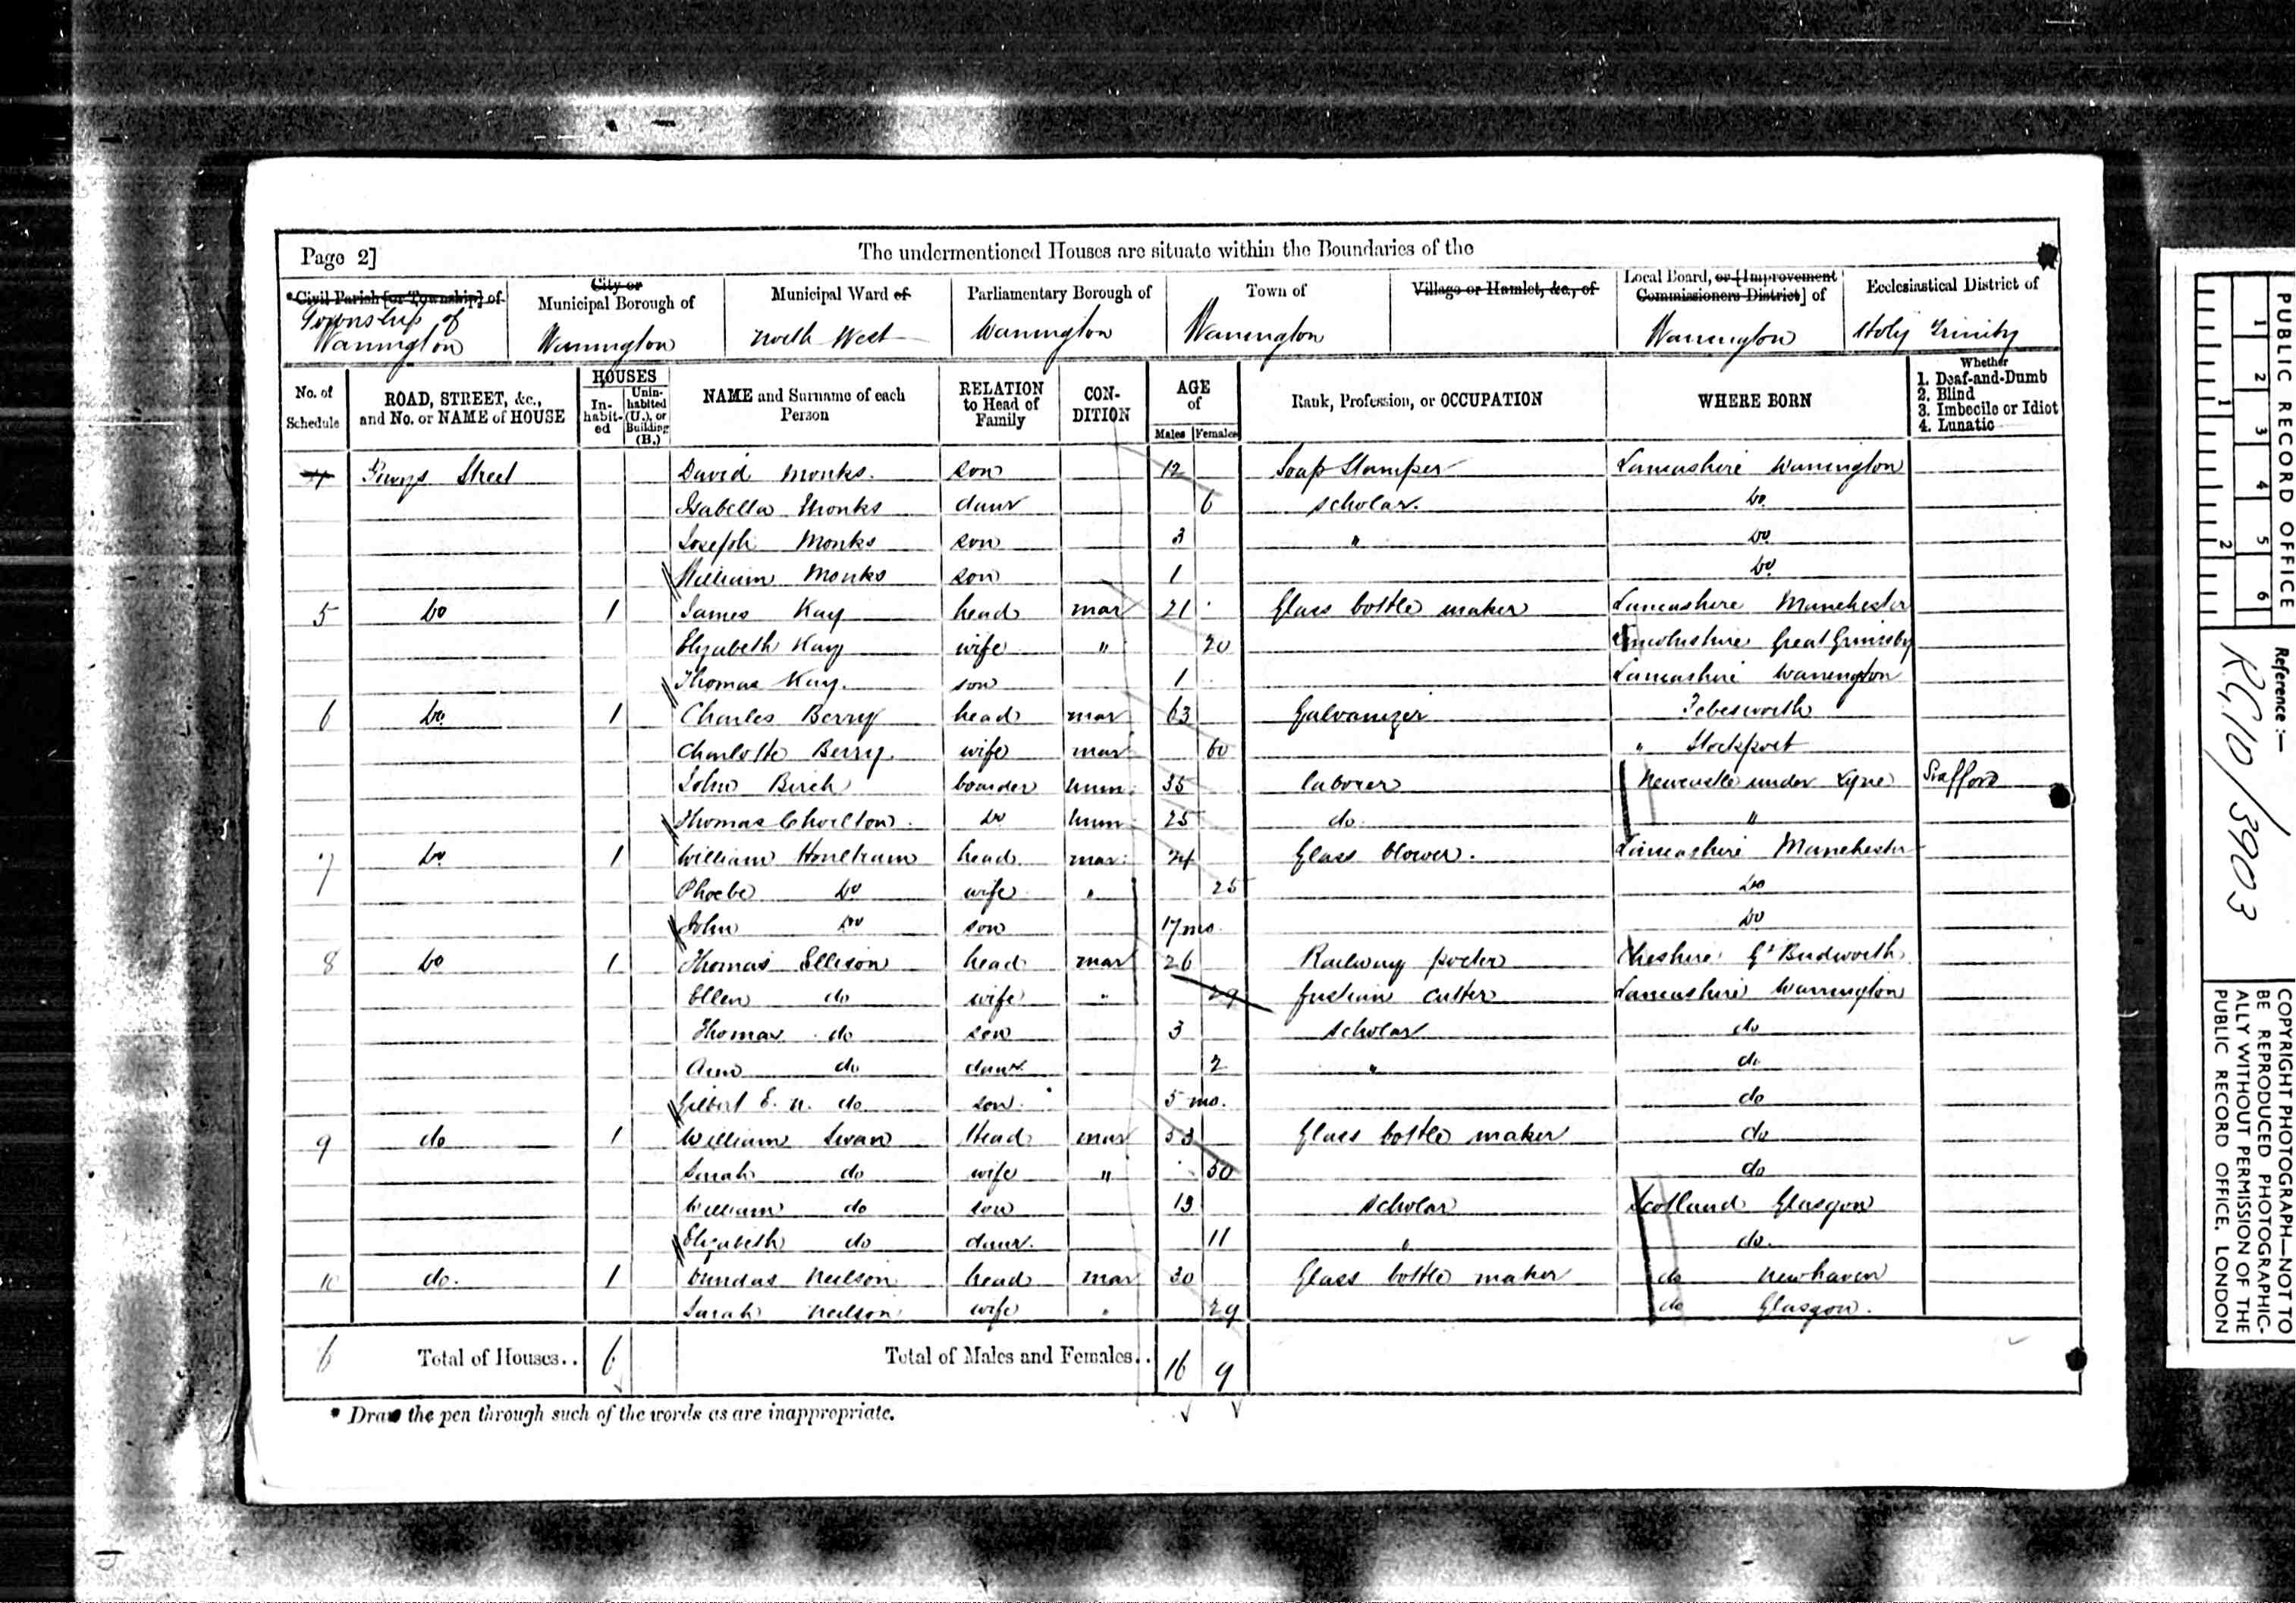 Page 2]
The undermentioned Houses are situate within the Boundaries of the
*Civil Parish [or Township] of
Township of
Warrington
City or
Municipal Borough of
Warrington
Municipal Ward of
North West
Parliamentary Borough of
Warrington
Town of
Warrington
Village or Hamlet, &c., of
Local Board, or [Improvement
Commissioners District] of
Warrington
Ecclesiastical District of
Holy Trinity
No. of
Schedule
ROAD, STREET, &c.,
and No. or NAME of HOUSE
HOUSES
In-
habit-
ed
Unin-
habited
(U.), or
Building
(B.)
NAME and Surname of each
Person
RELATION
to Head of
Family
CON-
DITION
AGE
of
Males Females
Rank, Profession, or OCCUPATION
WHERE BORN
Whether
1. Deaf-and-Dumb
2. Blind
3. Imbecile or Idiot
4. Lunatic
4 Street David Monks son 12 Soap Stamper Lancashire Warrington
Isabella Monks daur 6 scholar. Do
Joseph Monks son 3 " Do
William Monks son 1 Do
5 Do 1 James Kay head mar 21 Glass bottle maker Lancashire Manchester
Elizabeth Kay wife " 20 Lincolnshire Great Grimsby
Thomas Kay son 1 Lancashire Warrington
6 Do 1 Charles Berry head mar 63 Galvanizer
Charlotte Berry wife mar 60 " Stockport
John Birch boarder unm 35 laborer Newcastle under Lyne Stafford
Thomas Chorlton Do unm 25 do "
7 Do 1 William head mar 24 Glass blower. Lancashire Manchester
Phoebe Do wife " 25 Do
John Do son 17 mo Do
8 Do 1 Thomas Ellison head mar 26 Railway porter Cheshire Gt Budworth
Ellen do wife " 29 fustian cutter Lancashire Warrington
Thomas do son 3 scholar do
Ann do daur 2 " do
Gilbert E. N. do son 5 mo. do
9 do 1 William Swan Head mar 53 Glass bottle maker do
Sarah do wife " 50 do
William do son 13 scholar Scotland Glasgow
Elizabeth do daur. 11 " do.
10 do. 1 Dundas Neilson head mar 30 Glass bottle maker do Newhaven
Sarah Neilson wife " 29 do Glasgow.
6 Total of Houses.. 6 Total of Males and Females.. 16 9
* Draw the pen through such of the words as are inappropriate.
PUBLIC RECORD OFFICE
1 2 3 4 5 6
1 2
Reference :—
R.G.10/3903
COPYRIGHT PHOTOGRAPH—NOT TO
BE REPRODUCED PHOTOGRAPHIC-
ALLY WITHOUT PERMISSION OF THE
PUBLIC RECORD OFFICE, LONDON